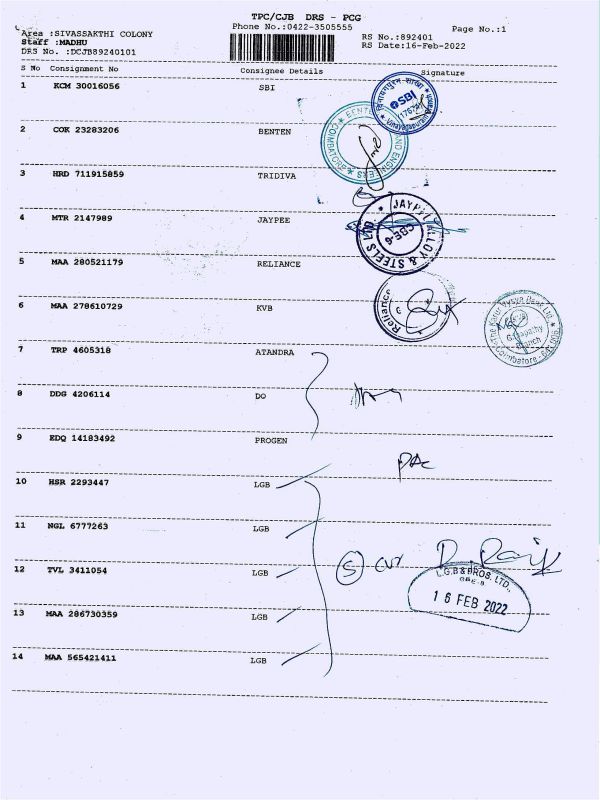 TPC/CJB DRS - PCG
Phone No.:0422-3505555
Page No.:1
Area :SIVASSAKTHI COLONY
Staff :MADHU
DRS No. :DCJB89240101
RS No.:892401
RS Date:16-Feb-2022
S No Consignment No Consignee Details Signature
1 KCM 30016056 SBI
SBI
2 COK 23283206 BENTEN
COIMBATORE
3 HRD 711915859 TRIDIVA
4 MTR 2147989 JAYPEE
JAYPEE ALLOY & STEELS LTD
CBE-6
5 MAA 280521179 RELIANCE
Reliance
6 MAA 278610729 KVB
The Karur Vysya Bank Ltd.
Ganapathy
Branch
Coimbatore - 641 006
7 TRP 4605318 ATANDRA
8 DDG 4206114 DO
9 EDQ 14183492 PROGEN
10 HSR 2293447 LGB
11 NGL 6777263 LGB
12 TVL 3411054 LGB
5
L.G.B & BROS. LTD.,
CBE-6
16 FEB 2022
13 MAA 286730359 LGB
14 MAA 565421411 LGB